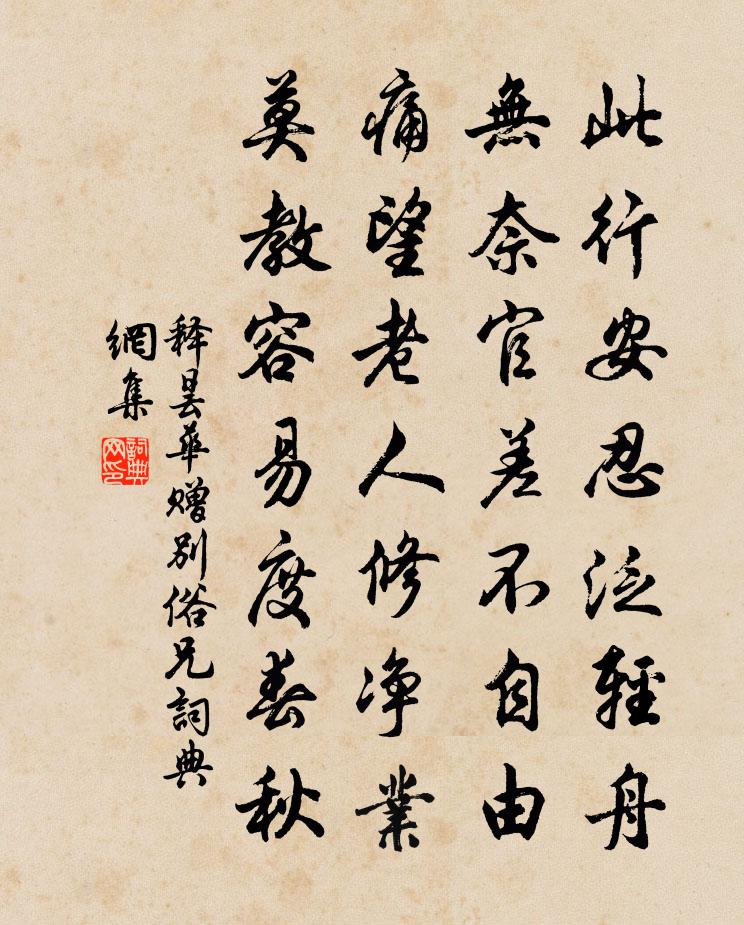 此行安忍泛輕舟
無奈官差不自由
痛望老人修净業
莫教容易度春秋
释曇華贈別俗兄詞典
網集
詞典
网印